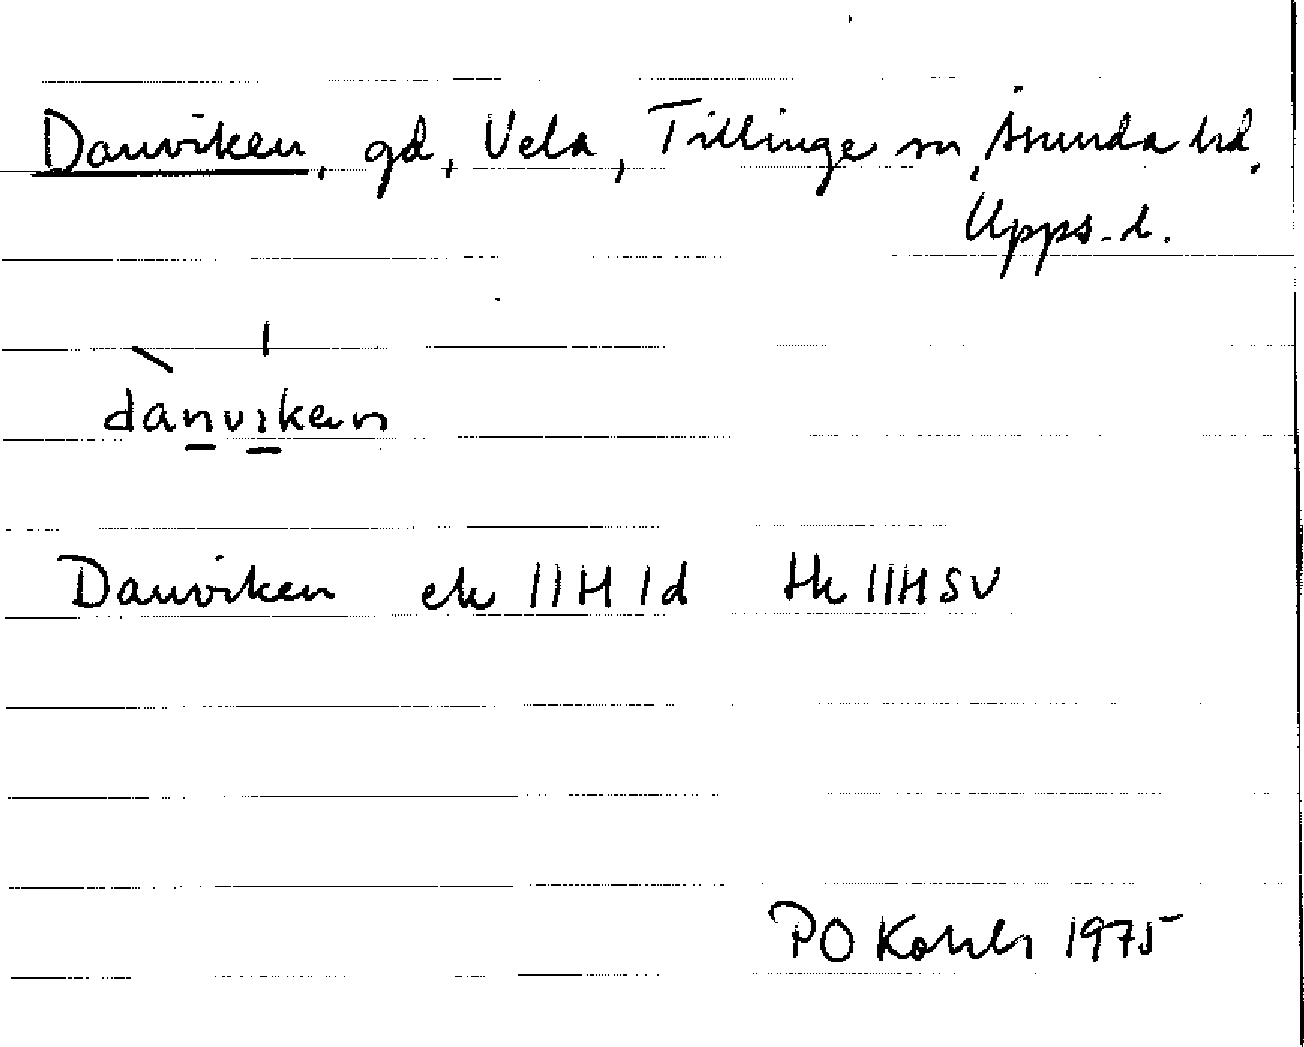 Danviken, gd, Vela, Tillinge sn, Åsunda hd,
Upps. l.
danviken
Danviken ek 11H 1d tk 11HSV
PO 1975